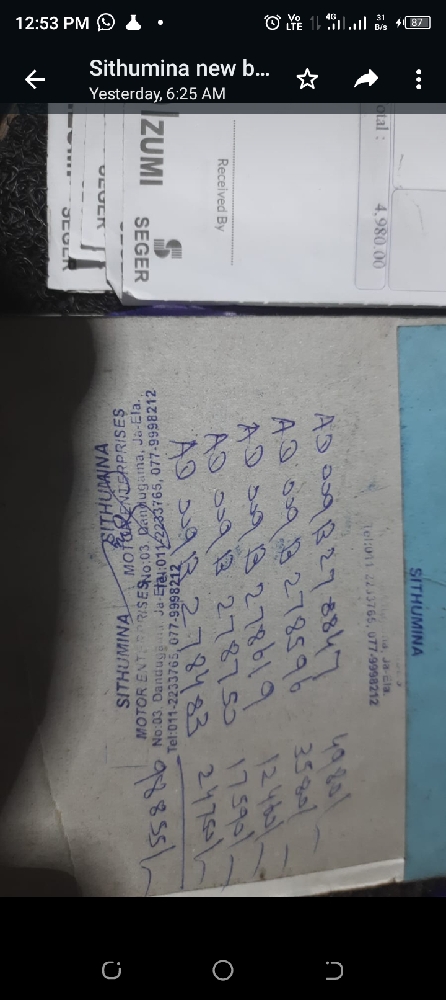 12:53 PM
Vo LTE
4G
31 B/s
87
Sithumina new b...
Yesterday, 6:25 AM
IZUMI
SEGER
Received By
otal : 4,980.00
SEGER
SITHUMINA
Ja-Ela.
Tel:011-2233765, 077-9998212
AD 009 B 278847 4980/-
AD 009 B 278596
AD 009 B 278619 12460/-
AD 009 B 278750 17590/-
AD 009 B 278483 24750/-
98855/-
SITHUMINA
MOTOR ENTERPRISES
No:03, Dandugama, Ja-Ela.
Tel:011-2233765, 077-9998212
SITHUMINA
MOTOR ENTERPRISES
No:03, Dandugama, Ja-Ela.
Tel:011-2233765, 077-9998212